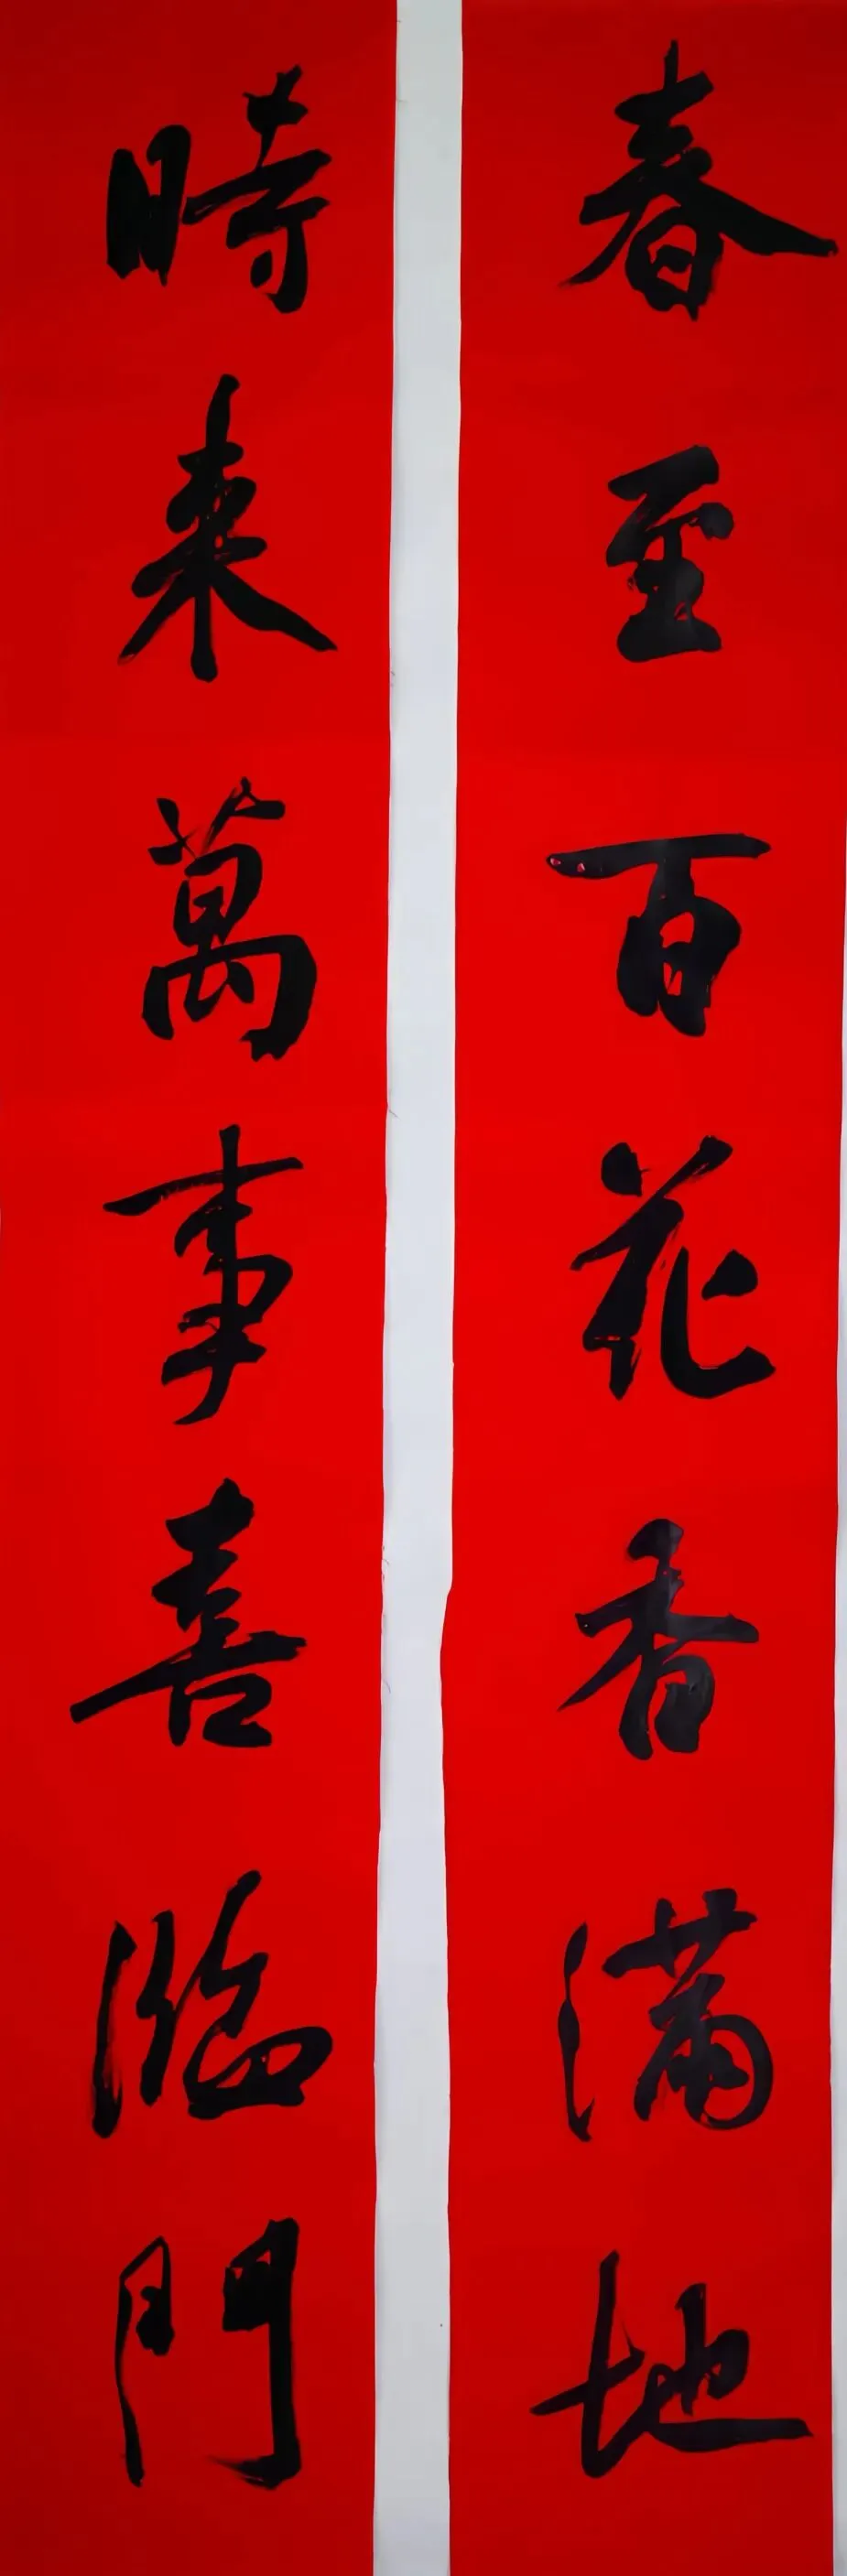 春至百花香满地
時来萬事喜臨門